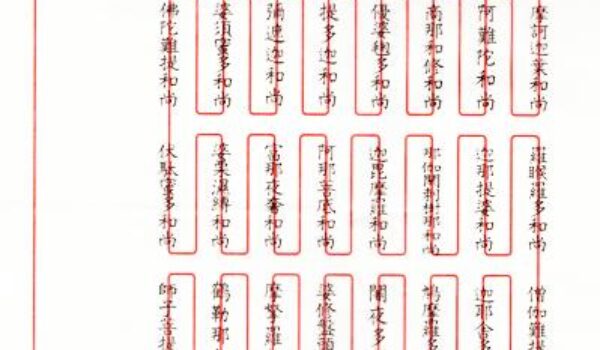 摩訶迦葉和尚
阿難陀和尚
商那和修和尚
優婆毱多和尚
提多迦和尚
彌遮迦和尚
婆須蜜多和尚
佛陀難提和尚
羅睺羅多和尚
迦那提婆和尚
那伽閼剌樹那和尚
迦毘摩羅和尚
阿那菩底和尚
富那夜奢和尚
婆栗湿縛和尚
伏駄蜜多和尚
僧伽難提
迦耶舎多
鳩摩羅多
闍夜多
婆修盤頭
摩拏羅
鶴勒那
師子菩提